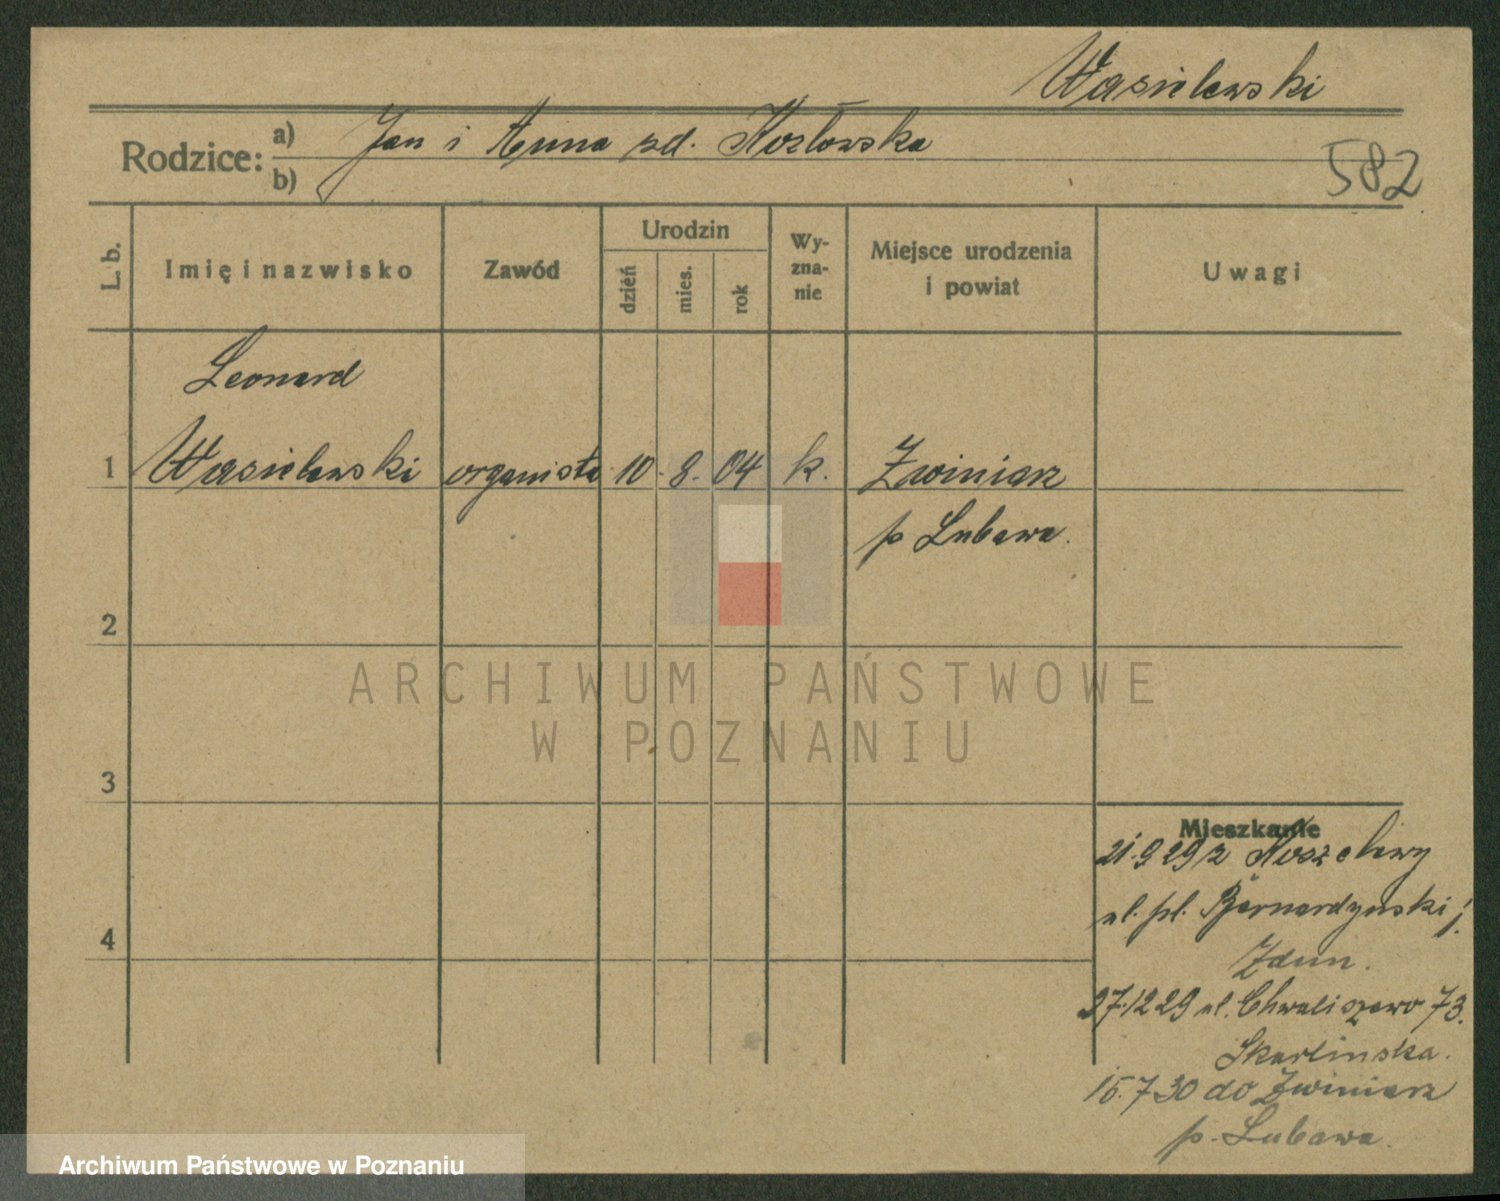 Wasielewski
Rodzice: a) Jan i Anna zd. Kozłowska
b)
582
L. b.
Imię i nazwisko
Zawód
Urodzin
dzień
mies.
rok
Wy-
zna-
nie
Miejsce urodzenia
i powiat
Uwagi
Leonard
1 Wasielewski organista 10. 8. 04 k. Zwiniarz
p Lubawa.
2
ARCHIWUM PAŃSTWOWE
W POZNANIU
3
Mieszkanie
21.9 29 z Koszelewy
4
ul. pl. Bernardyński
Zdun.
27.12 29 ul. Chwaliszewo 73.
Skarlinska.
15.7 30 do Zwiniarz
p. Lubawa.
Archiwum Państwowe w Poznaniu